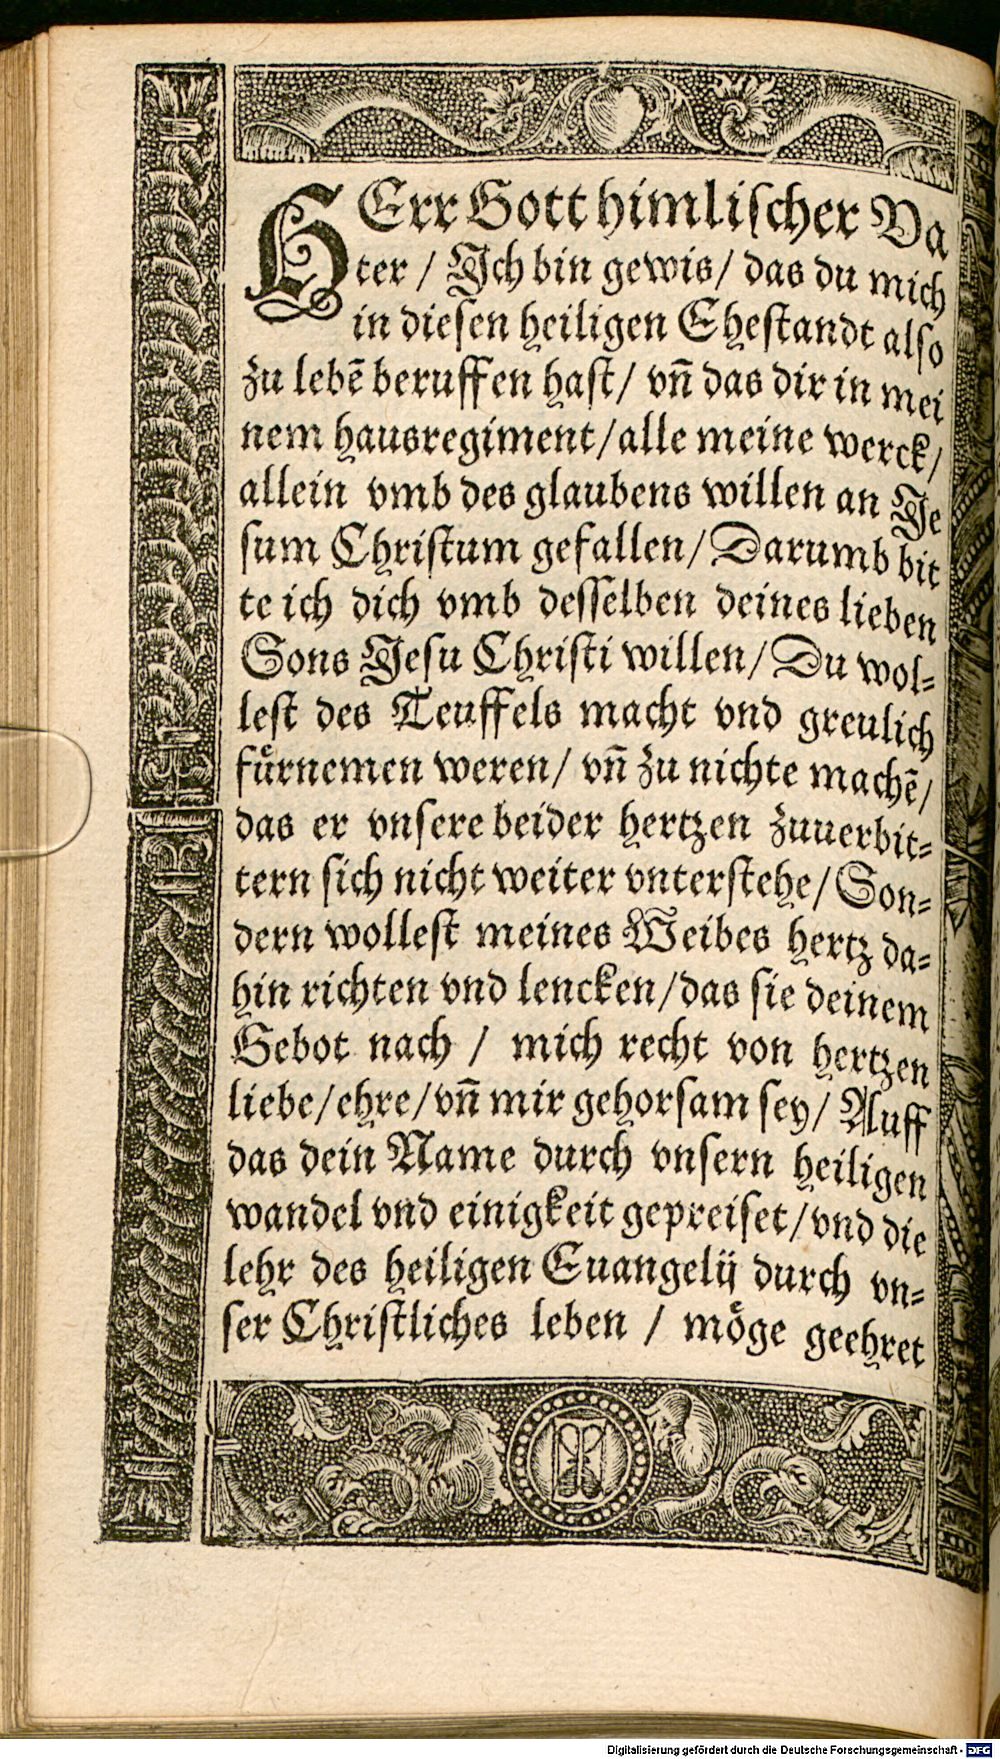 HErr Gott himlischer Va
ter / Ich bin gewis / das du mich
in diesen heiligen Ehestandt also
zu lebē beruffen hast / vñ das dir in mei
nem hausregiment / alle meine werck /
allein vmb des glaubens willen an Je
sum Christum gefallen / Darumb bit
te ich dich vmb desselben deines lieben
Sons Jesu Christi willen / Du wol-
lest des Teuffels macht vnd greulich
fuͤrnemen weren / vñ zu nichte machē /
das er vnsere beider hertzen zuuerbit-
tern sich nicht weiter vnterstehe / Son-
dern wollest meines Weibes hertz da-
hin richten vnd lencken / das sie deinem
Gebot nach / mich recht von hertzen
liebe / ehre / vñ mir gehorsam sey / Auff
das dein Name durch vnsern heiligen
wandel vnd einigkeit gepreiset / vnd die
lehr des heiligen Euangelij durch vn-
ser Christliches leben / moͤge geehret
Digitalisierung gefördert durch die Deutsche Forschungsgemeinschaft - DFG